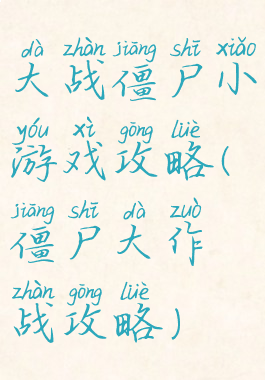 dà zhàn jiāng shī xiǎo
大战僵尸小
yóu xì gōng lüè
游戏攻略(
jiāng shī dà zuò
僵尸大作
zhàn gōng lüè
战攻略)